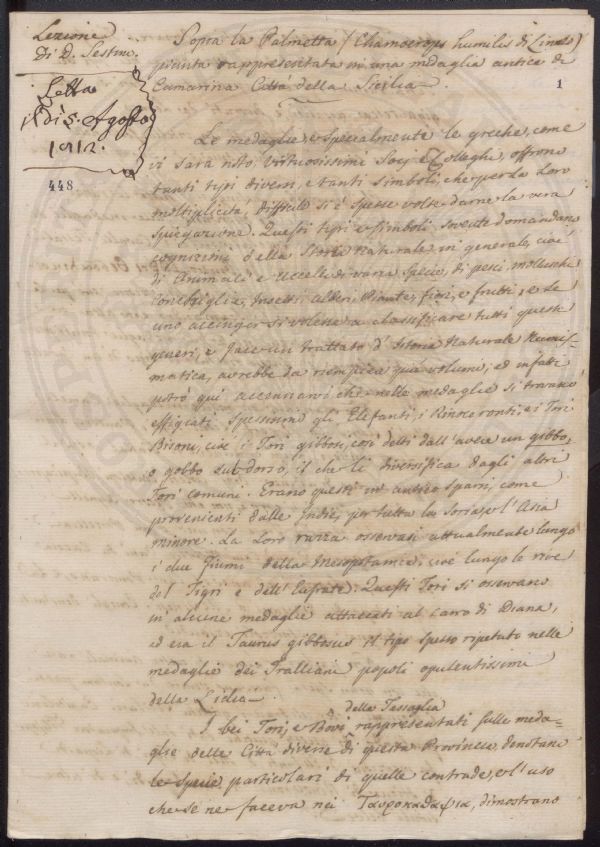 Lezione
Di D. Sestini.
Letta
il dì 5. Agosto
1812.
448
1
Sopra la Palmetta (Chamoerops humilis di Linneo)
pianta rappresentata in una medaglia antica di
Camarina Città della Sicilia.
Le medaglie, e specialmente le greche, come
vi sarà noto, virtuosissimi Socj e Colleghi, offrono
tanti tipi diversi, e tanti simboli, che per la Loro
moltiplicità, difficile si è spesse volte darne la vera
spiegazione. Questi tipi e simboli, sovente domandano
cognizioni della Storia Naturale in generale, cioè
di Animali e Uccelli di varia specie, di pesci, molluschi
Conchiglie, Insetti, Alberi, Piante, fiori, e frutti; e se
uno accinger si volesse a classificare tutti questi
generi, e fare un trattato d'Istoria Naturale Numis-
matica, avrebbe da riempiere più volumi; ed infatti
potrò qui accennarvi che nelle medaglie si trovano
effigiati spessissimo gli Elefanti, i Rinoceronti, e i Tori
Bisoni, cioè i Tori gibbosi, così detti dall'avere un gibbo,
o gobbo sul dorso, il che li diversifica dagli altri
Tori comuni. Erano questi in antico sparsi, come
provenienti dalle Indie, per tutta la Soria, e l'Asia
minore. La Loro razza osservasi attualmente lungo
i due fiumi della Mesopotamia, cioè lungo le rive
del Tigri e dell'Eufrate. Questi Tori si osservano
in alcune medaglie attaccati al carro di Diana,
ed era il Taurus gibbosus il tipo spesso ripetuto nelle
medaglie dei Tralliani popoli opulentissimi
della Lidia.
della Tessaglia
I bei Tori, e Bovi rappresentati sulle meda=
glie delle Città diverse di questa Provincia, denotano
le specie particolari di quelle contrade, e l'uso
che se ne faceva nei Ταυροκαθαψια, dimostrano